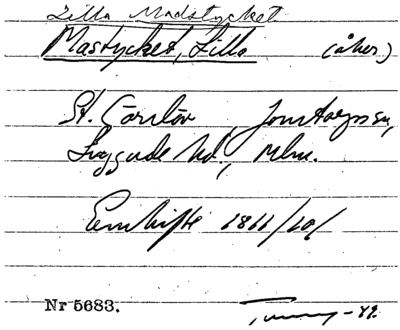 Lilla Madstycket
Mastycket, Lilla (åker)
St. Jonstorps sn,
Luggude hd., Mlm.
Enskifte 1811/10/
Nr 5683.
-42.